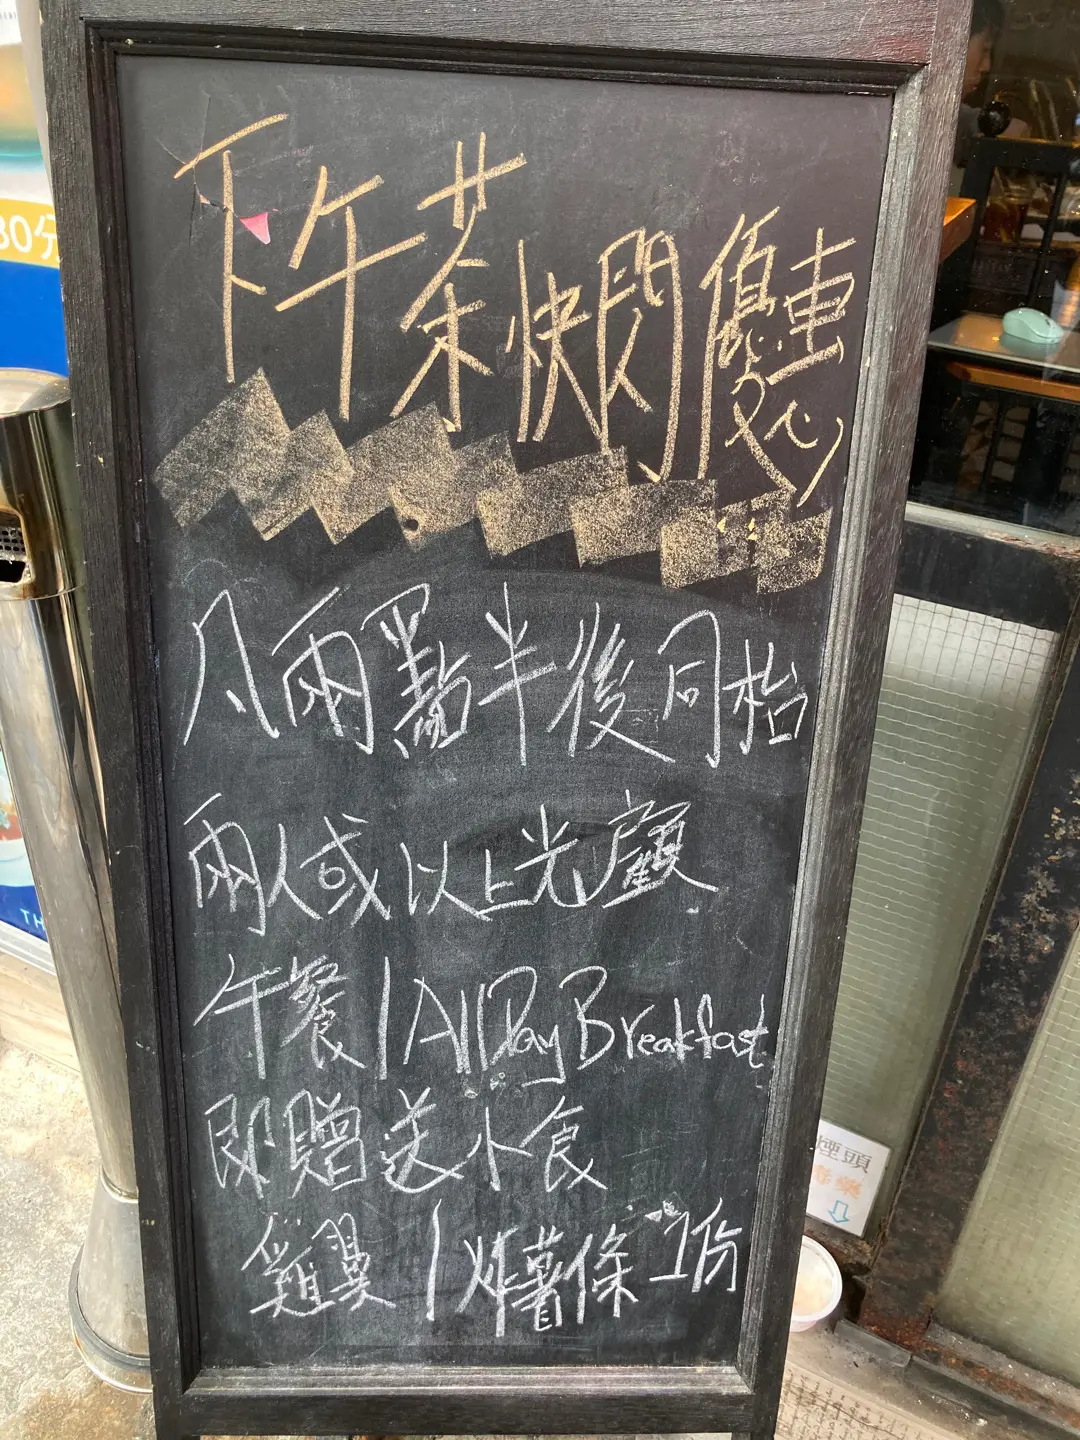 下午茶快閃優惠
凡兩點半後同枱
兩人或以上光顧
午餐/All Day Breakfast
即贈送小食
雞翼/炸薯條1份
30分
TH
煙頭